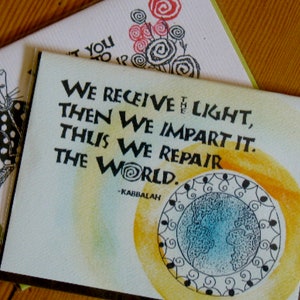 T YOU
WE RECEIVE THE LIGHT,
THEN WE IMPART IT.
THUS WE REPAIR
THE WORLD.
-KABBALAH